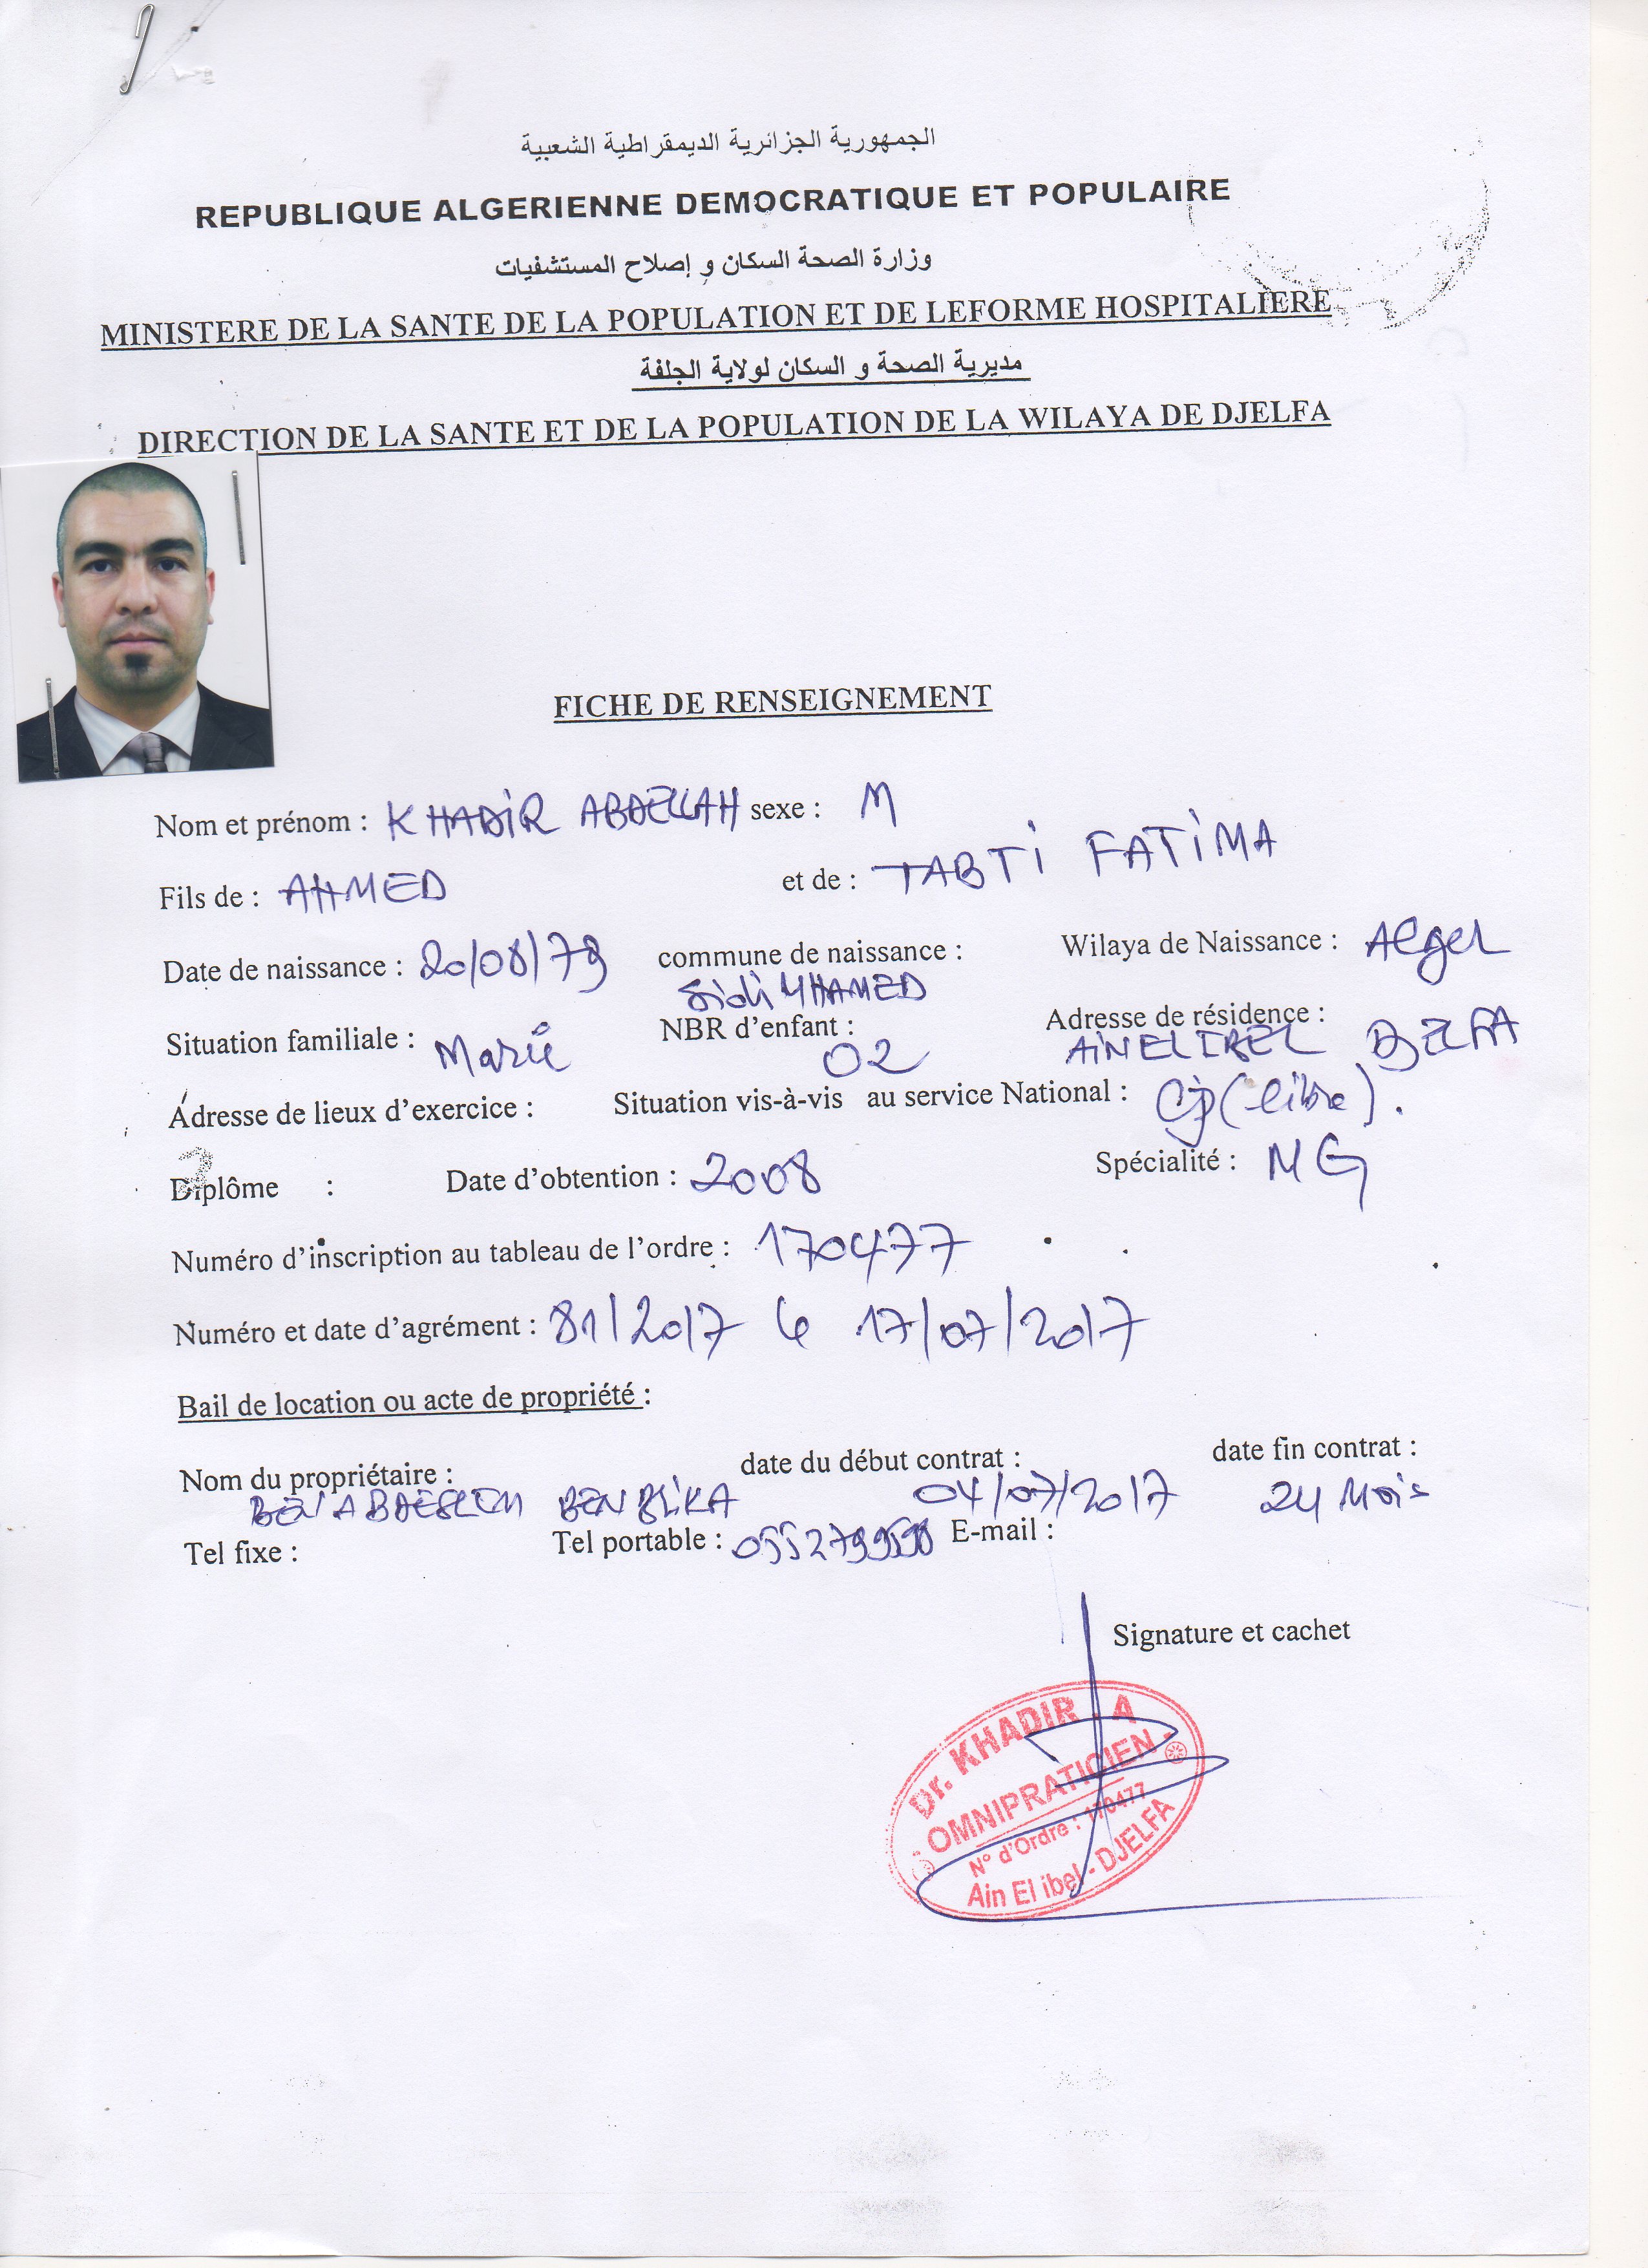 الجمهورية الجزائرية الديمقراطية الشعبية
REPUBLIQUE ALGERIENNE DEMOCRATIQUE ET POPULAIRE
وزارة الصحة السكان و إصلاح المستشفيات
MINISTERE DE LA SANTE DE LA POPULATION ET DE LEFORME HOSPITALIERE
مديرية الصحة و السكان لولاية الجلفة
DIRECTION DE LA SANTE ET DE LA POPULATION DE LA WILAYA DE DJELFA
FICHE DE RENSEIGNEMENT
Nom et prénom : KHADIR ABDELLAH sexe : M
Fils de : AHMED et de : TABTI FATIMA
Date de naissance : 20/08/79 commune de naissance : Sidi MHAMED Wilaya de Naissance : Alger
Situation familiale : Marié NBR d'enfant : 02 Adresse de résidence : AIN EL IBEL DJELFA
Adresse de lieux d'exercice : Situation vis-à-vis au service National : (libre).
Diplôme : Date d'obtention : 2008 Spécialité : MG
Numéro d'inscription au tableau de l'ordre : 170477
Numéro et date d'agrément : 81/2017 le 17/07/2017
Bail de location ou acte de propriété :
Nom du propriétaire : date du début contrat : date fin contrat :
BEN 04/07/2017 24 Mois
Tel fixe : Tel portable : E-mail :
Signature et cachet
Dr. KHADIR . A
OMNIPRATICIEN
N° d'Ordre : 170477
Ain El ibel - DJELFA